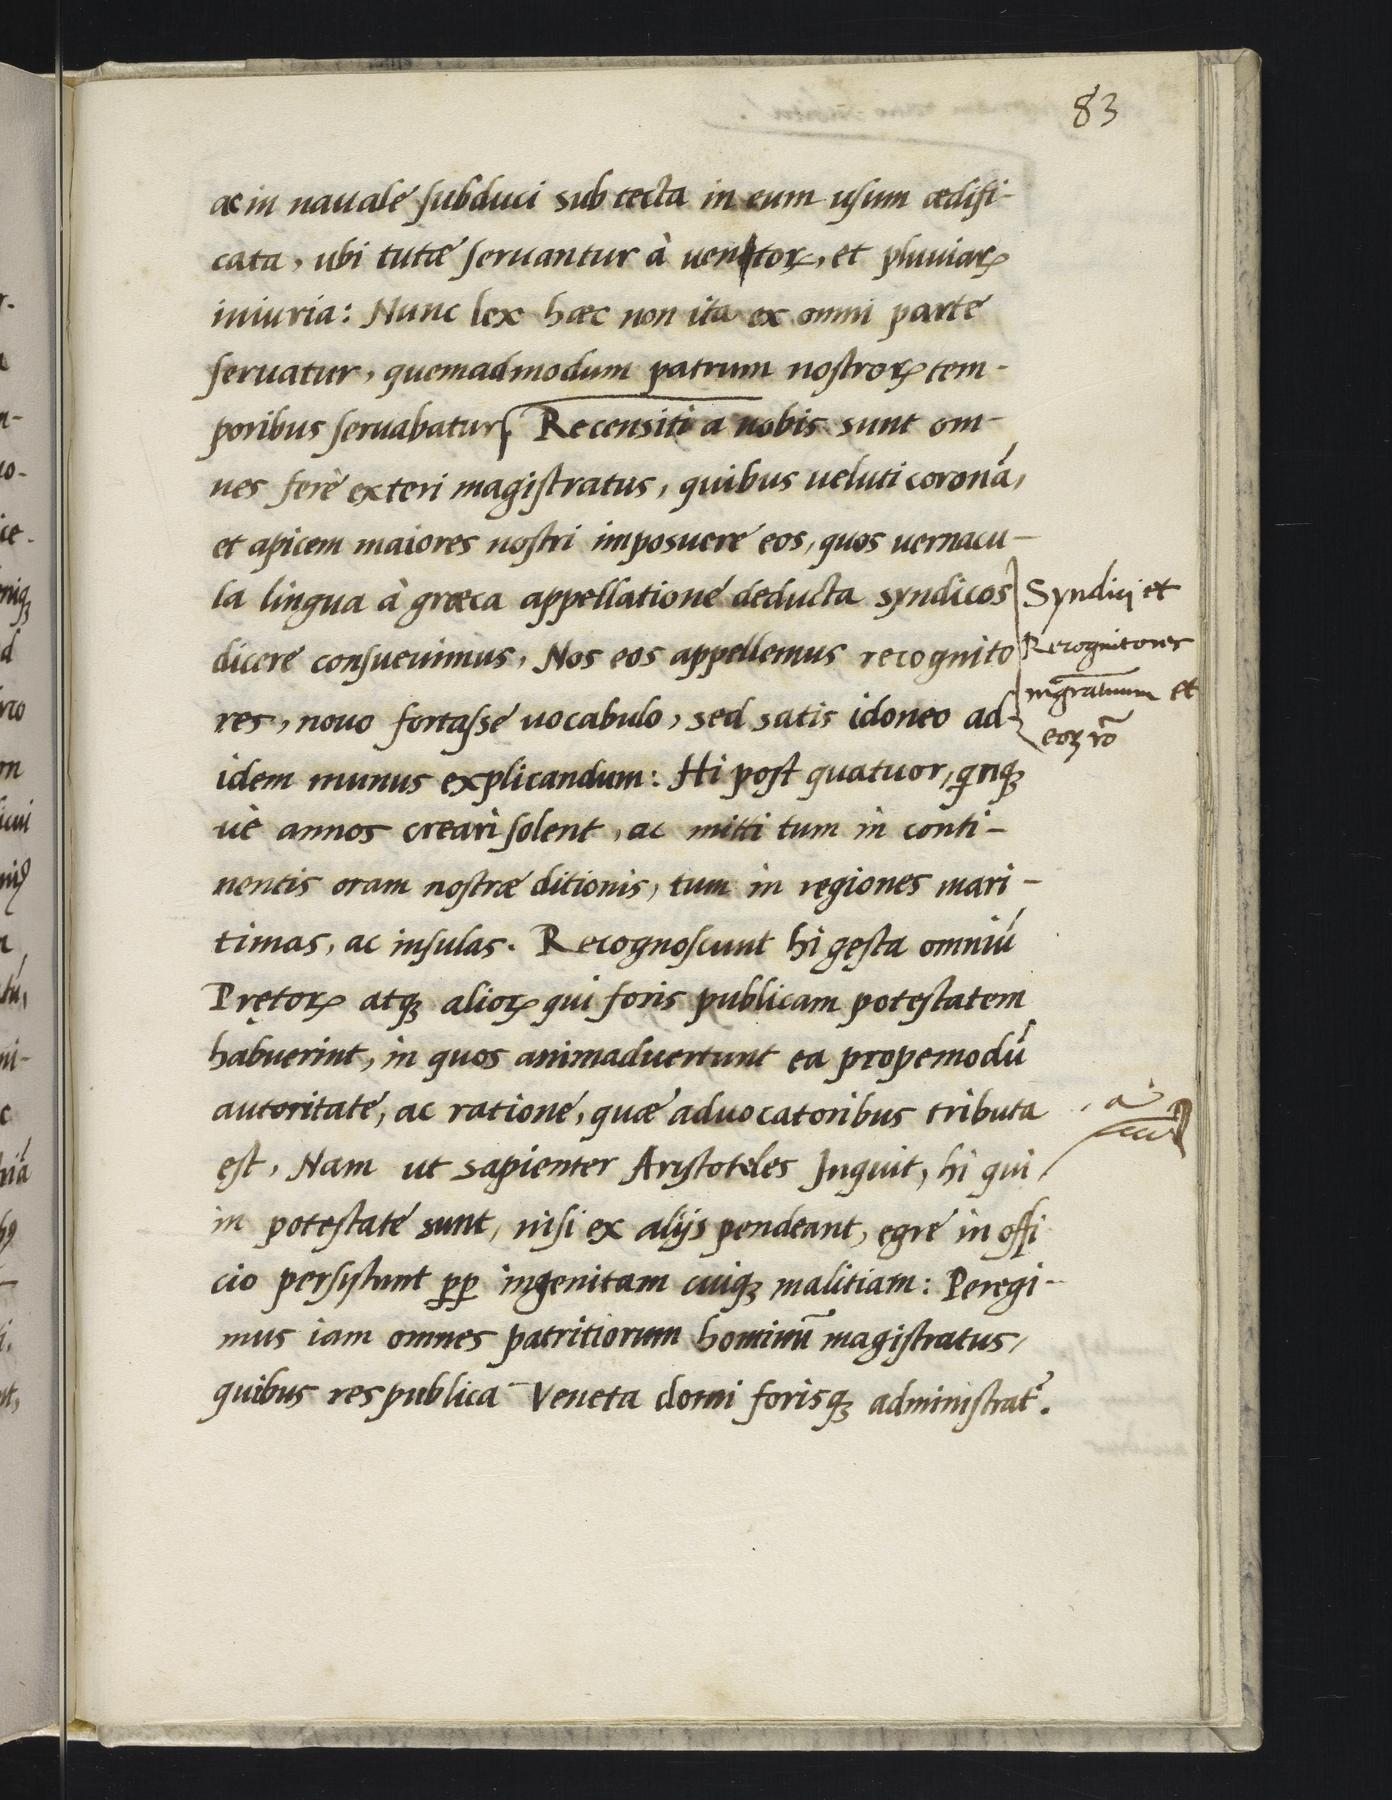 83
ac in nauale subduci sub tecta in eum usum ædifi-
cata, ubi tutæ seruantur à uentorꝝ, et pluuiarꝝ
iniuria: Nunc lex hæc non ita ex omni parte
seruatur, quemadmodum patrum nostrorꝝ tem-
poribus seruabatur, Recensiti a nobis sunt om-
nes ferè exteri magistratus, quibus ueluti coronã,
et apicem maiores nostri imposuere eos, quos uernacu-
la lingua à græca appellatione deducta syndicos
dicere consueuimus, Nos eos appellemus recognito
res, nouo fortasse uocabulo, sed satis idoneo ad-
idem munus explicandum: Hi post quatuor, qnqꝫ
uè annos creari solent, ac mitti tum in conti-
nentis oram nostræ ditionis, tum in regiones mari-
timas, ac insulas. Recognoscunt hi gesta omniũ
Prętorꝝ atqꝫ aliorꝝ qui foris publicam potestatem
habuerint, in quos animaduertunt ea propemodũ
autoritate, ac ratione, quæ aduocatoribus tributa
est, Nam ut sapienter Aristoteles Inquit, hi qui
in potestate sunt, nisi ex alijs pendeant, egre in offi
cio persistunt ꝓꝑ ingenitam cuiqꝫ malitiam: Peregi-
mus iam omnes patritiorum hominũ magistratus,
quibus respublica Veneta domi forisqꝫ administrat̃.
Syndici et
Recognitores
mgratuum et
eoꝝ rõ
a